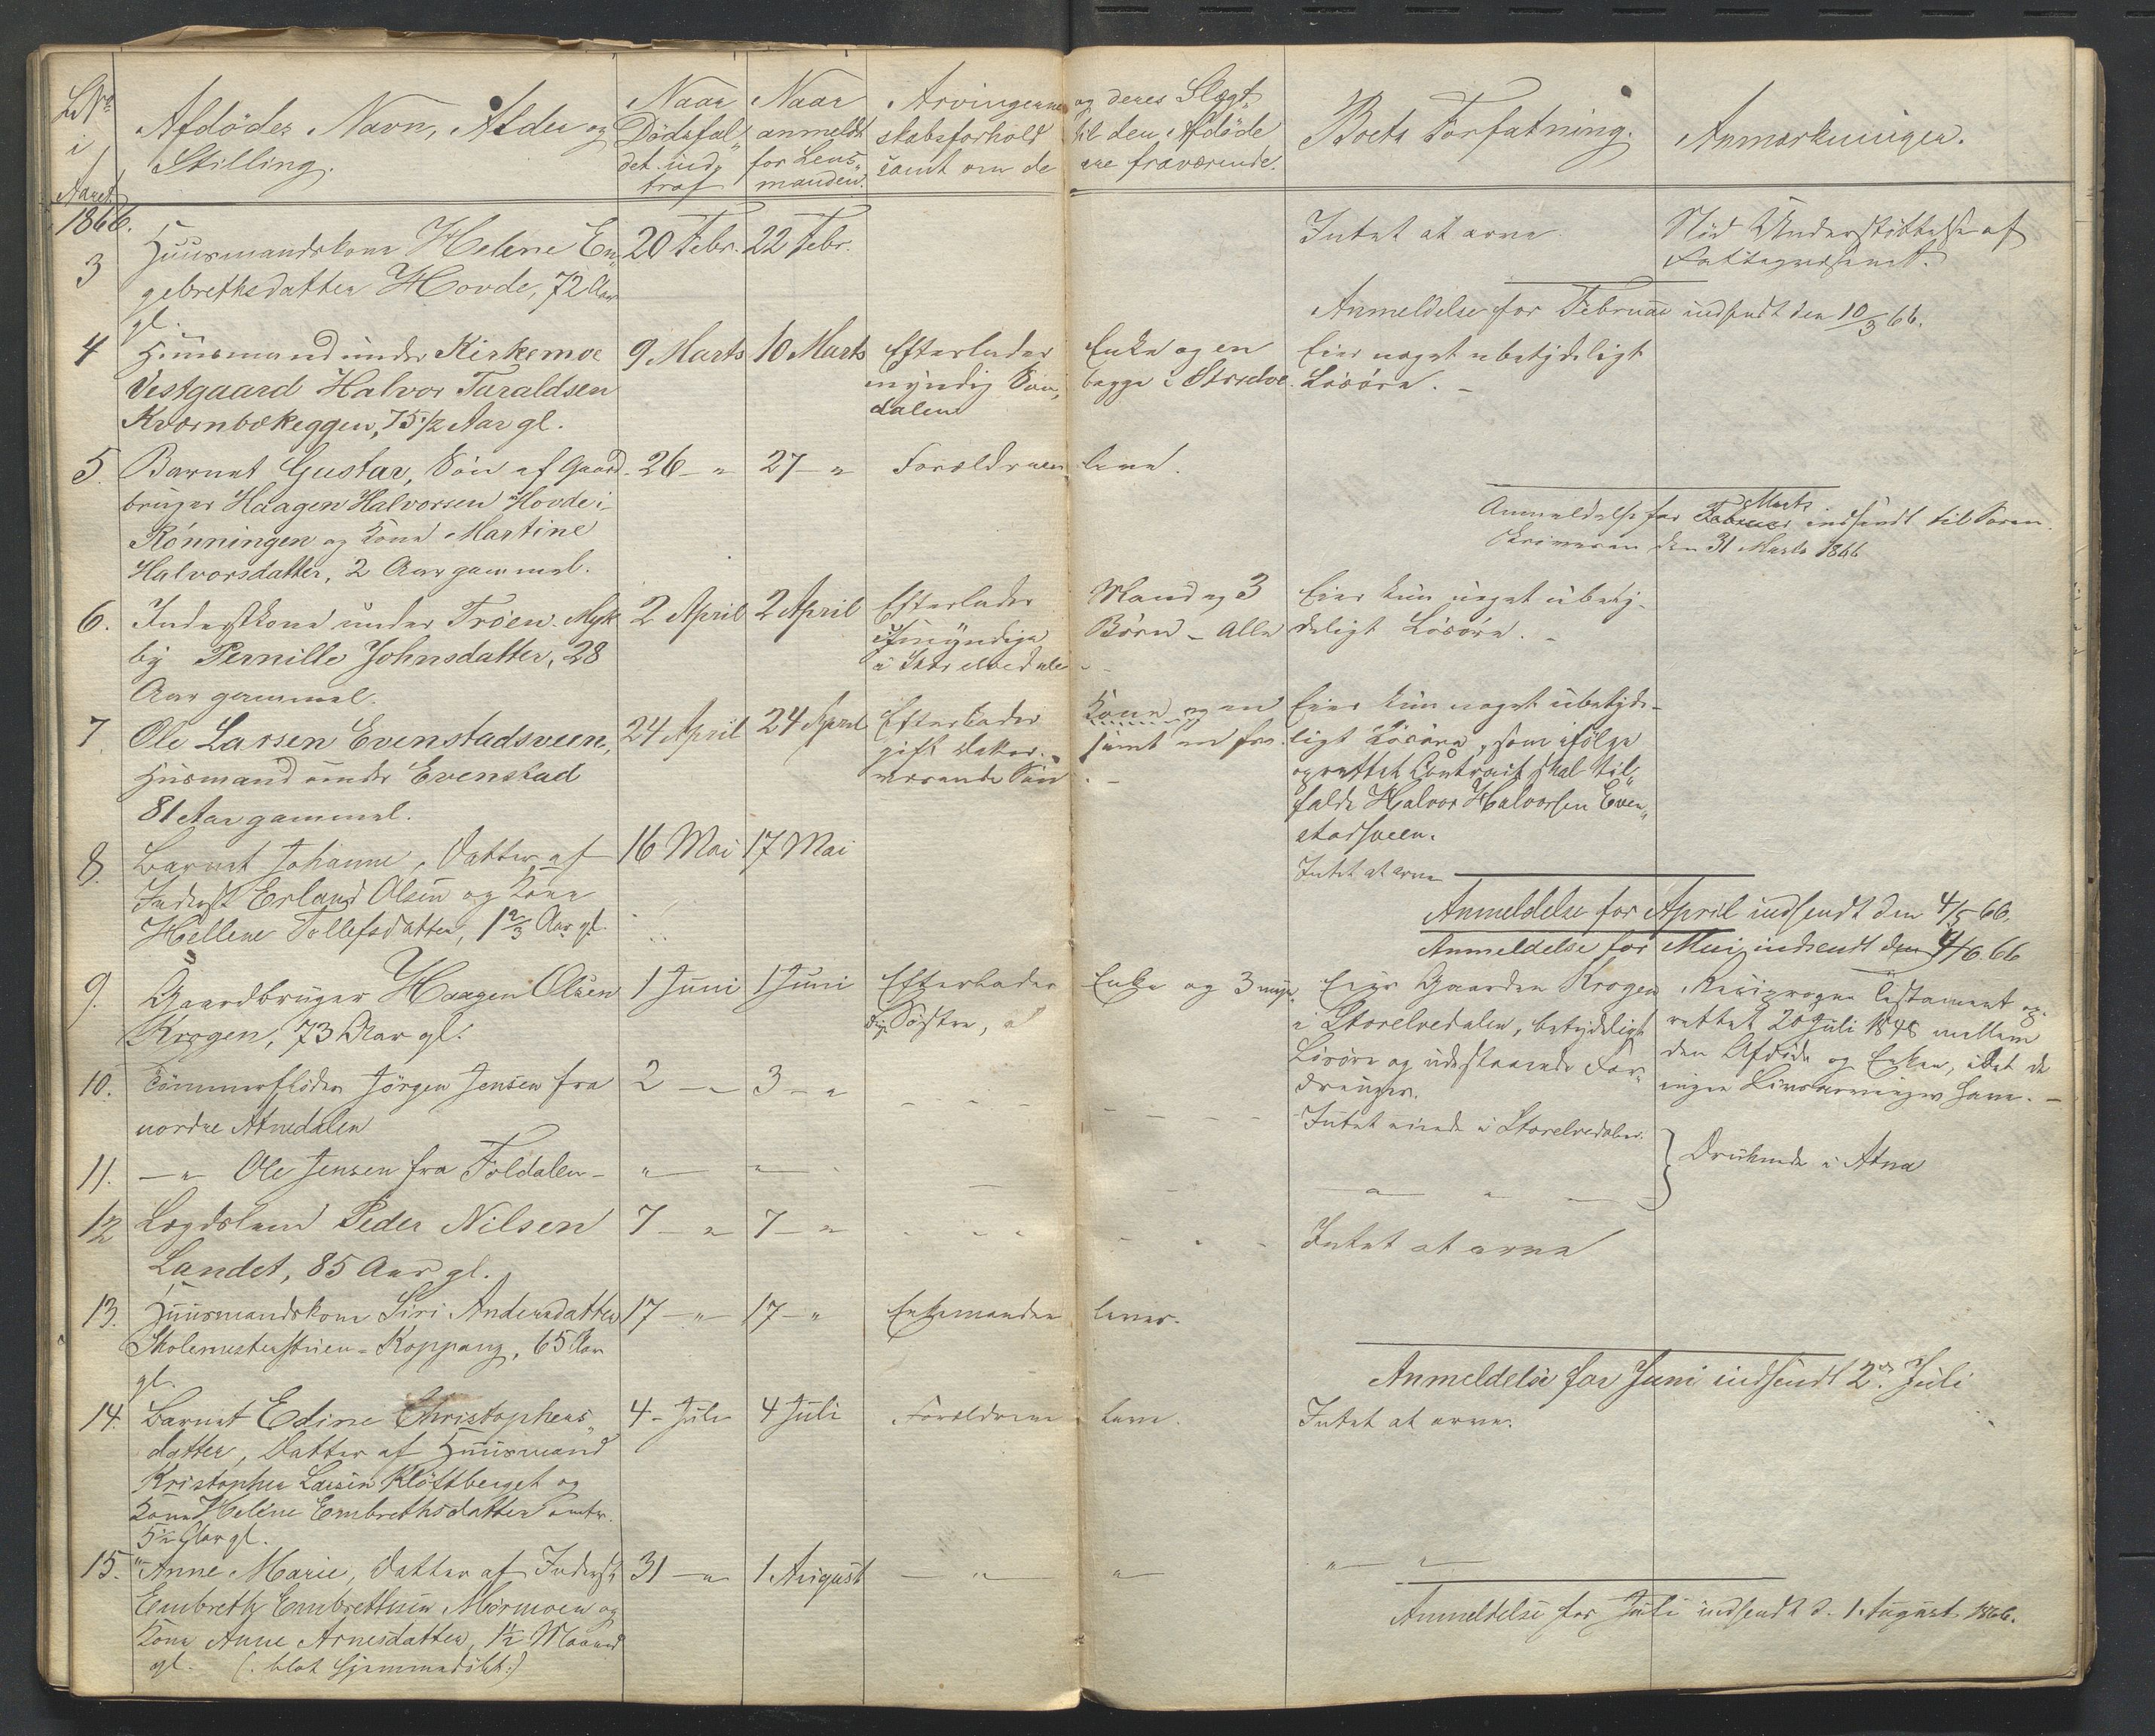 LNo
i
Aaret
Afdödes Navn, Alder og
Stilling.
Naar
Dödsfal„
det ind„
traf
Naar
anmeldt
for Lens„
manden.
Arvingerne og deres Slægt„
skabsforhold til den Afdöde
samt om de ere fraværende.
Boets Forfatning.
Anmærkninger.
1866.
3
Huusmandskone Helene En„
gebrethsdatter Hovde, 72 Aar
gl.
20 Febr.
22 Febr.
Intet at arve.
Nöd Understöttelse af
Fattigvæsenet.
Anmeldelse for Februar indsendt den 10/3 66.
4
Huusmand under Kirkemoe
Vestgaard Halvor Taraldsen
Kværnbækeggen, 75 1/2 Aar gl.
9 Marts
10 Marts
Efterlader Enke og en
myndig Sön, begge i Storelve
dalen
Eier noget ubetydeligt
Lösöre. –
5.
Barnet Gustav, Sön af Gaard
bruger Haagen Halvorsen Hovde i
Rönningen og Kone Martine
Halvorsdatter, 2 Aar gammel.
26 – „
27 – „
Forældrene leve.
Anmeldelse for Februar Marts indsendt til Soren
skriveren den 31 Marts 1866
6.
Inderstkone under Tröen-Myk
by Pernille Johnsdatter, 28
Aar gammel.
2 April
2 April
Efterlader Mand og 3
umyndige Börn – Alle
i Storelvedalen –
Eier kun noget ubety-
deligt Lösöre. –
7
Ole Larsen Evenstadsveen,
Husmand under Evenstad
81 Aar gammel.
24 April
24 April
Efterlader Kone og en
gift Datter samt en fra-
værende Sön. –
Eier kun noget ubetyde-
ligt Lösöre, som ifölge
oprettet Contract skal til„
falde Halvor Halvorsen Even„
stadsveen.
8.
Barnet Johanne, Datter af
Inderst Erland Olsen og Kone
Hellene Tollefsdatter, 1 2/3 Aar gl.
16 Mai
17 Mai
Intet at arve
Anmeldelse for April indsendt den 4/5 66.
Anmeldelse for Mai indsendt den 4/6. 66
9.
Gaardbruger Haagen Olsen
Krogen, 73 Aar gl.
1 Juni
1 Juni
Efterlader Enke og 3 myn„
dige Söstre,
Eier Gaarden Krogen
i Storelvedalen, betydeligt
Lösöre og udestaaende For„
dringer.
Reciprogue Testament op-
rettet 20 Juli 1848 mellem
den Afdöde og Enken, idet de
ingen Livsarvinger have. –
10.
Tömmerflöder Jörgen Jensen fra
nordre Atnedalen
2 – „
3 – „
Intet eiende i Storelvedalen.
11.
– „ Ole Jensen fra Foldalen –
„
„
– „ – „ –
Druknede i Atna
12
Lægdslem Peder Nilsen
Landet, 85 Aar gl.
7 – „
7 – „
Intet at arve
13.
Huusmandskone Siri Andersdatter
Skolemesterstuen-Koppang, 65 Aar
gl.
17 – „
17 – „
Enkemanden lever.
Anmeldelse for Juni indsendt 2den Juli
14.
Barnet Edine Christophers„
datter, Datter af Huusmand
Kristopher Larsen Klöftberget og
Kone Helene Embrethsdatter omtr.
5 1/2 Aar gl.
4 – Juli
4 Juli
Forældrene leve.
Intet at arve.
15.
„ Anne Marie, Datter af Inderst
Embreth Embrethsen Mörmoen og
Kone Anne Arnesdatter, 1 1/2 Maaned
gl. (: blot hjemmedöbt :)
31 – „
1 August
– „ – „
„ – „ –
Anmeldelse for Juli indsendt d. 1 August 1866.